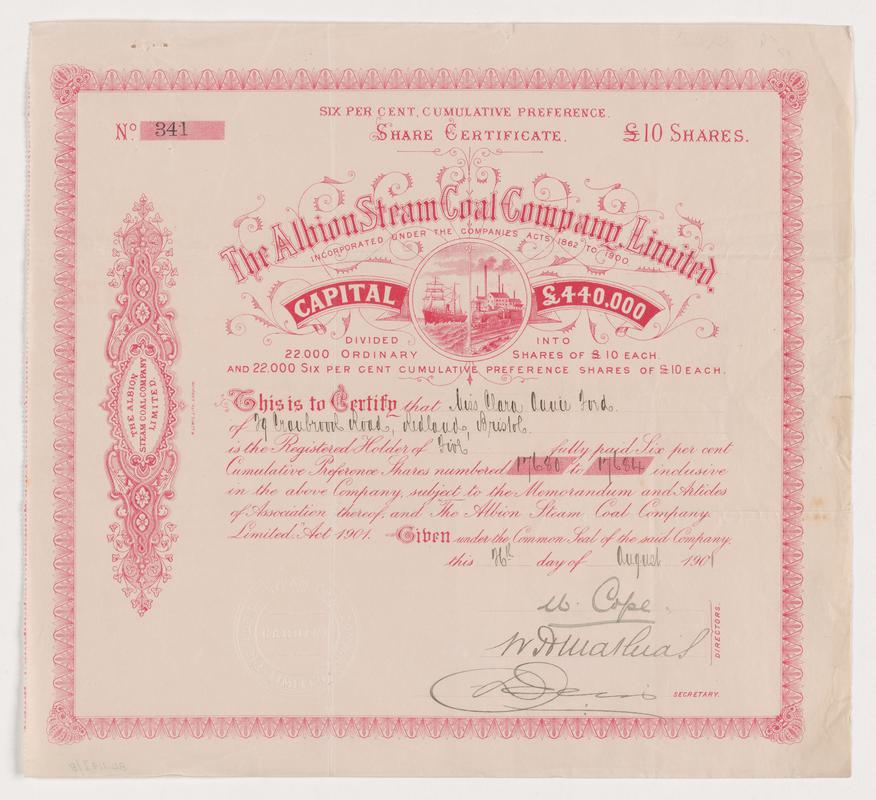 SIX PER CENT. CUMULATIVE PREFERENCE.
No. 341
SHARE CERTIFICATE.
£10 SHARES.
The Albion Steam Coal Company, Limited.
INCORPORATED UNDER THE COMPANIES ACTS 1862 TO 1900
CAPITAL £440.000
DIVIDED INTO
22.000 ORDINARY SHARES OF £10 EACH.
AND 22.000 SIX PER CENT CUMULATIVE PREFERENCE SHARES OF £10 EACH.
THE ALBION
STEAM COAL COMPANY
LIMITED.
This is to Certify that Miss Clara Annie Ford.
of 79 Cranbrook Road, Redland, Bristol.
is the Registered Holder of Five fully paid Six per cent
Cumulative Preference Shares numbered 17680 to 17684 inclusive
in the above Company, subject to the Memorandum and Articles
of Association thereof, and "The Albion Steam Coal Company
Limited" Act 1901. Given under the Common Seal of the said Company,
this 26th day of August 1901
W. Cope.
DIRECTORS.
SECRETARY.
CARDIFF